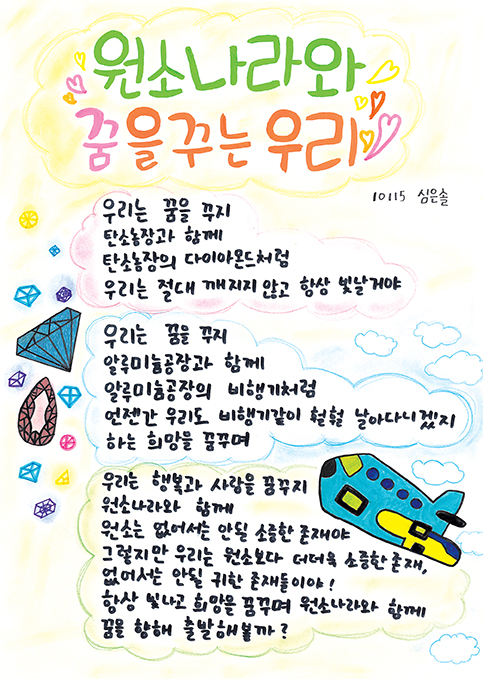 원소나라와
꿈을 꾸는 우리
10115 심은솔
우리는 꿈을 꾸지
탄소농장과 함께
탄소농장의 다이아몬드처럼
우리는 절대 깨지지 않고 항상 빛날거야
우리는 꿈을 꾸지
알루미늄공장과 함께
알루미늄공장의 비행기처럼
언젠간 우리도 비행기같이 훨훨 날아다니겠지
하는 희망을 꿈꾸며
우리는 행복과 사랑을 꿈꾸지
원소나라와 함께
원소는 없어서는 안될 소중한 존재야
그렇지만 우리는 원소보다 더더욱 소중한 존재,
없어서는 안될 귀한 존재들이야!
항상 빛나고 희망을 꿈꾸며 원소나라와 함께
꿈을 향해 출발해볼까?